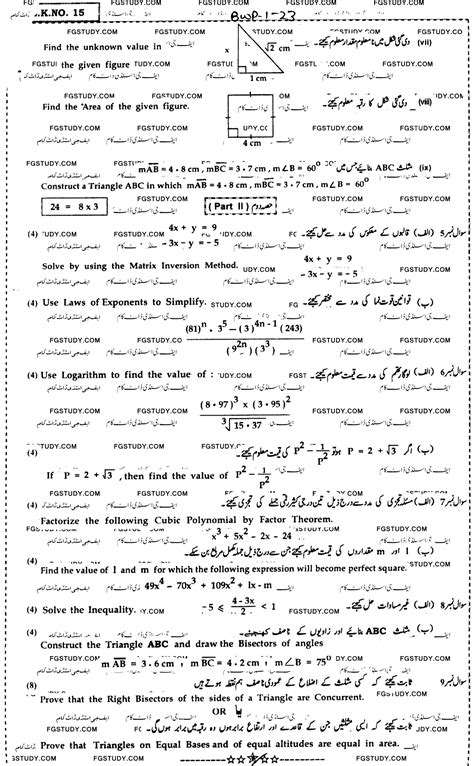 K.NO. 15
BWP-1-23
(vii) دی گئی شکل میں نامعلوم مقدار معلوم کیجیے۔
Find the unknown value in
the given figure
x
√2 cm
1 cm
(viii) دی گئی شکل کا رقبہ معلوم کیجیے۔
Find the Area of the given figure.
4 cm
(ix) مثلث ABC بنائیے جس میں mAB = 4·8 cm, mBC = 3·7 cm, m∠B = 60⁰
Construct a Triangle ABC in which mAB = 4·8 cm, mBC = 3·7 cm, m∠B = 60⁰
24 = 8 x 3
(Part II) حصہ دوم
سوال نمبر 5 (الف) قالبوں کے معکوس کی مدد سے حل کیجیے۔ 4x + y = 9 (4)
- 3x - y = - 5
Solve by using the Matrix Inversion Method. 4x + y = 9
- 3x - y = - 5
(ب) قوانین قوت نما کی مدد سے مختصر کیجیے۔
(4) Use Laws of Exponents to Simplify.
(81)ⁿ · 3⁵ – (3)⁴ⁿ⁻¹ (243)
(9²ⁿ) (3³)
سوال نمبر 6 (الف) لوگارتھم کی مدد سے قیمت معلوم کیجیے۔
(4) Use Logarithm to find the value of :
(8·97)³ x (3·95)²
³√15·37
(ب) اگر P = 2 + √3 ہو تو P² – 1/P² کی قیمت معلوم کیجیے۔ (4)
If P = 2 + √3, then find the value of P² – 1/P²
سوال نمبر 7 (الف) مسئلہ تجزی کی مدد سے درج ذیل تین درجی کثیر رقمی جملے کی تجزی کیجیے۔ (4)
Factorize the following Cubic Polynomial by Factor Theorem.
x³ + 5x² – 2x – 24
(ب) l اور m مقداروں کی قیمت معلوم کیجیے جن سے درج ذیل جملہ مکمل مربع بن سکے۔
(4)
Find the value of l and m for which the following expression will become perfect square.
49x⁴ – 70x³ + 109x² + lx - m
سوال نمبر 8 (الف) غیر مساوات حل کیجیے۔
(4) Solve the Inequality. -5 ≤ (4 - 3x)/2 < 1
(ب) مثلث ABC بنائیے اور زاویوں کے ناصف کھینچیے۔ (4)
Construct the Triangle ABC and draw the Bisectors of angles
m AB = 3·6 cm, m BC = 4·2 cm, m∠B = 75⁰
سوال نمبر 9 ثابت کیجیے کہ کسی مثلث کے اضلاع کے عمودی ناصف ہم نقطہ ہوتے ہیں
(8)
Prove that the Right Bisectors of the sides of a Triangle are Concurrent.
یا OR
ثابت کیجیے کہ ایسی مثلثیں جن کے قاعدے اور ارتفاع برابر ہوں وہ رقبہ میں برابر ہوں گی
Prove that Triangles on Equal Bases and of equal altitudes are equal in area.
FGSTUDY.COM
ایف جی اسٹڈی ڈاٹ کام